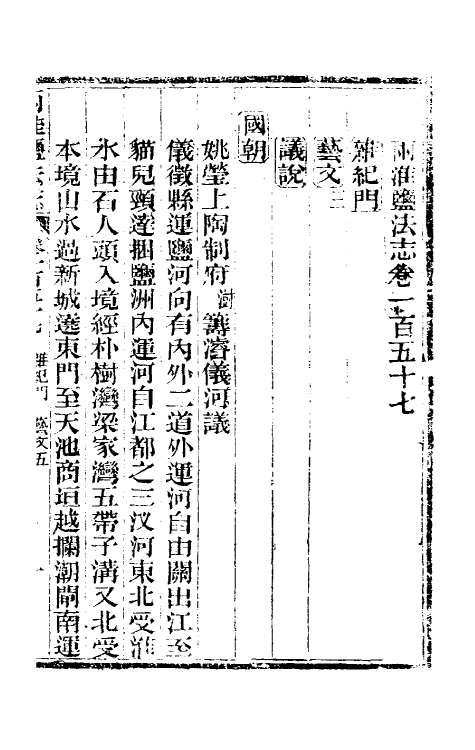 兩淮鹽法志卷一百五十七
雜紀門
藝文五
議說
國朝
姚瑩上陶制府澍籌濬儀河議
儀徵縣運鹽河向有內外二道外運河自由關出江至
貓兒頸達捆鹽洲內運河自江都之三汊河東北受淮
水由石人頭入境經朴樹灣梁家灣五帶子溝又北受
本境山水過新城達東門至天池商垣越攔潮閘南運
兩淮鹽法志 卷一百五十七 雜紀門 藝文五 一